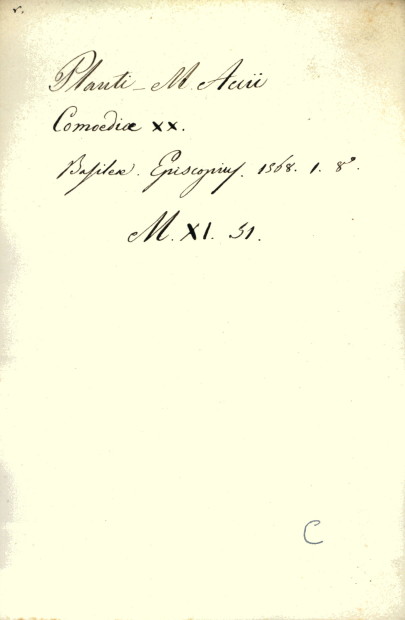 v.
Plauti - M. Accii
Comoediæ XX.
Basileæ. Episcopius. 1568. 1. 8º.
M. XI. 51.
C